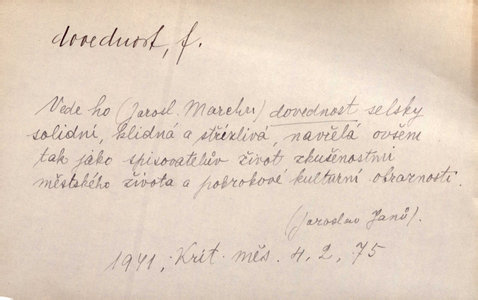 dovednost, f.
Vede ho (Jarosl. Marchu) dovednost selsky
solidní, klidná a střízlivá, navřelá ovšem
tak jako spisovatelův život zkušenostmi
městského života a pokrokové kulturní obraznosti.
(Jaroslav Janů).
1941, Krit. měs. 4, 2, 75